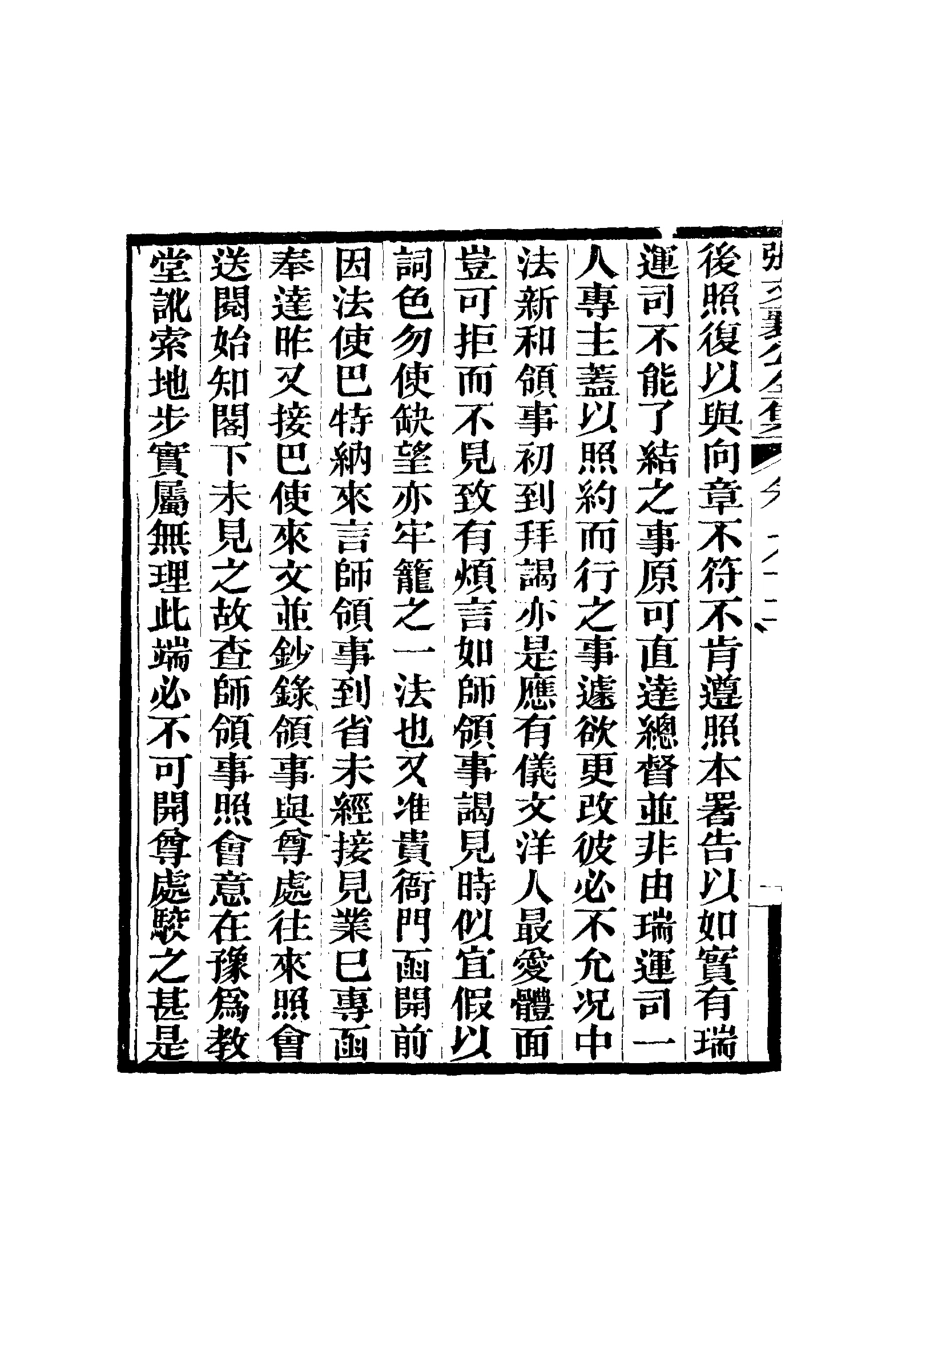 張文襄公全集
後照復以與向章不符不肯遵照本署告以如實有瑞
運司不能了結之事原可直達總督並非由瑞運司一
人專主蓋以照約而行之事遽欲更改彼必不允况中
法新和領事初到拜謁亦是應有儀文洋人最愛體面
豈可拒而不見致有煩言如師領事謁見時似宜假以
詞色勿使缺望亦牢籠之一法也又准貴衙門函開前
因法使巴特納來言師領事到省未經接見業已專函
奉達昨又接巴使來文並鈔錄領事與尊處往來照會
送閱始知閣下未見之故查師領事照會意在豫為教
堂訛索地步實屬無理此端必不可開尊處駮之甚是